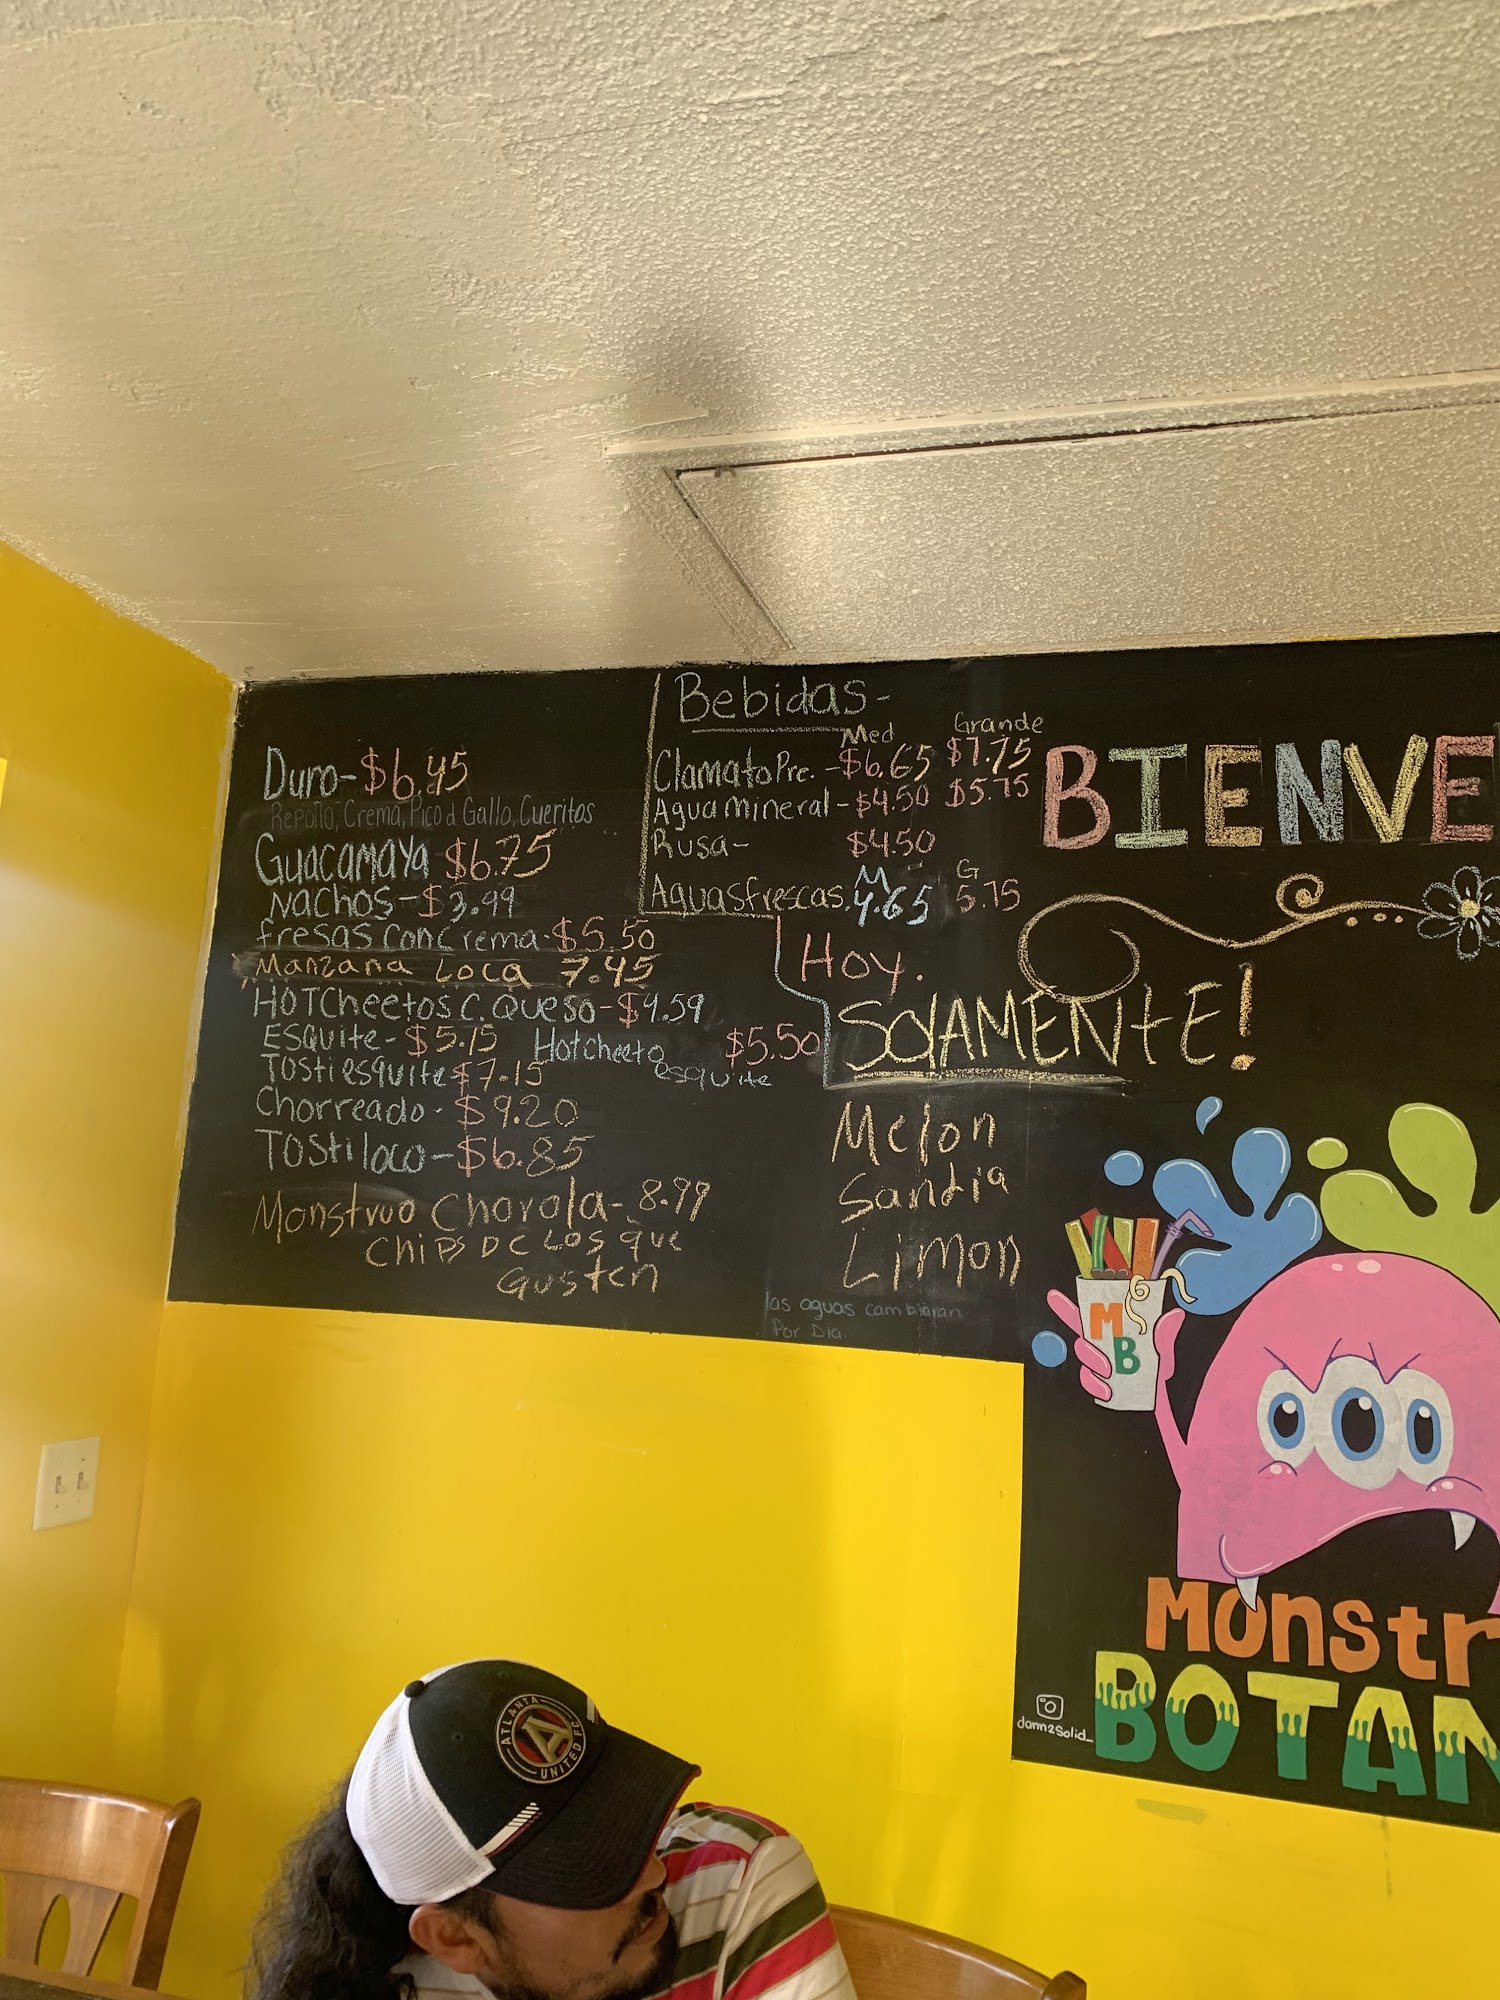 Duro-$6.45
Repollo, Crema, Pico d Gallo, Cueritos
Guacamaya $6.75
Nachos-$3.99
fresas con crema-$5.50
Manzana Loca 7.45
HOTCheetos c. Queso-$4.59
Esquite-$5.75
Hotcheeto esquite $5.50
Tostiesquite $7.15
Chorreado-$9.20
TOStiloco-$6.85
Monstruo Chorola-8.99
Chips De Los que
Gusten
Bebidas-
Med Grande
Clamato Pre.-$6.65 $7.75
Agua Mineral-$4.50 $5.75
Rusa- $4.50
M G
Aguas frescas. 4.65 5.75
Hoy.
SOlAMENtE!
Melon
Sandia
Limon
las aguas cambiaran
Por Dia.
BIENVE
M
B
Monstr
BOTAN
damn2Solid_
ATLANTA
A
UNITED FC